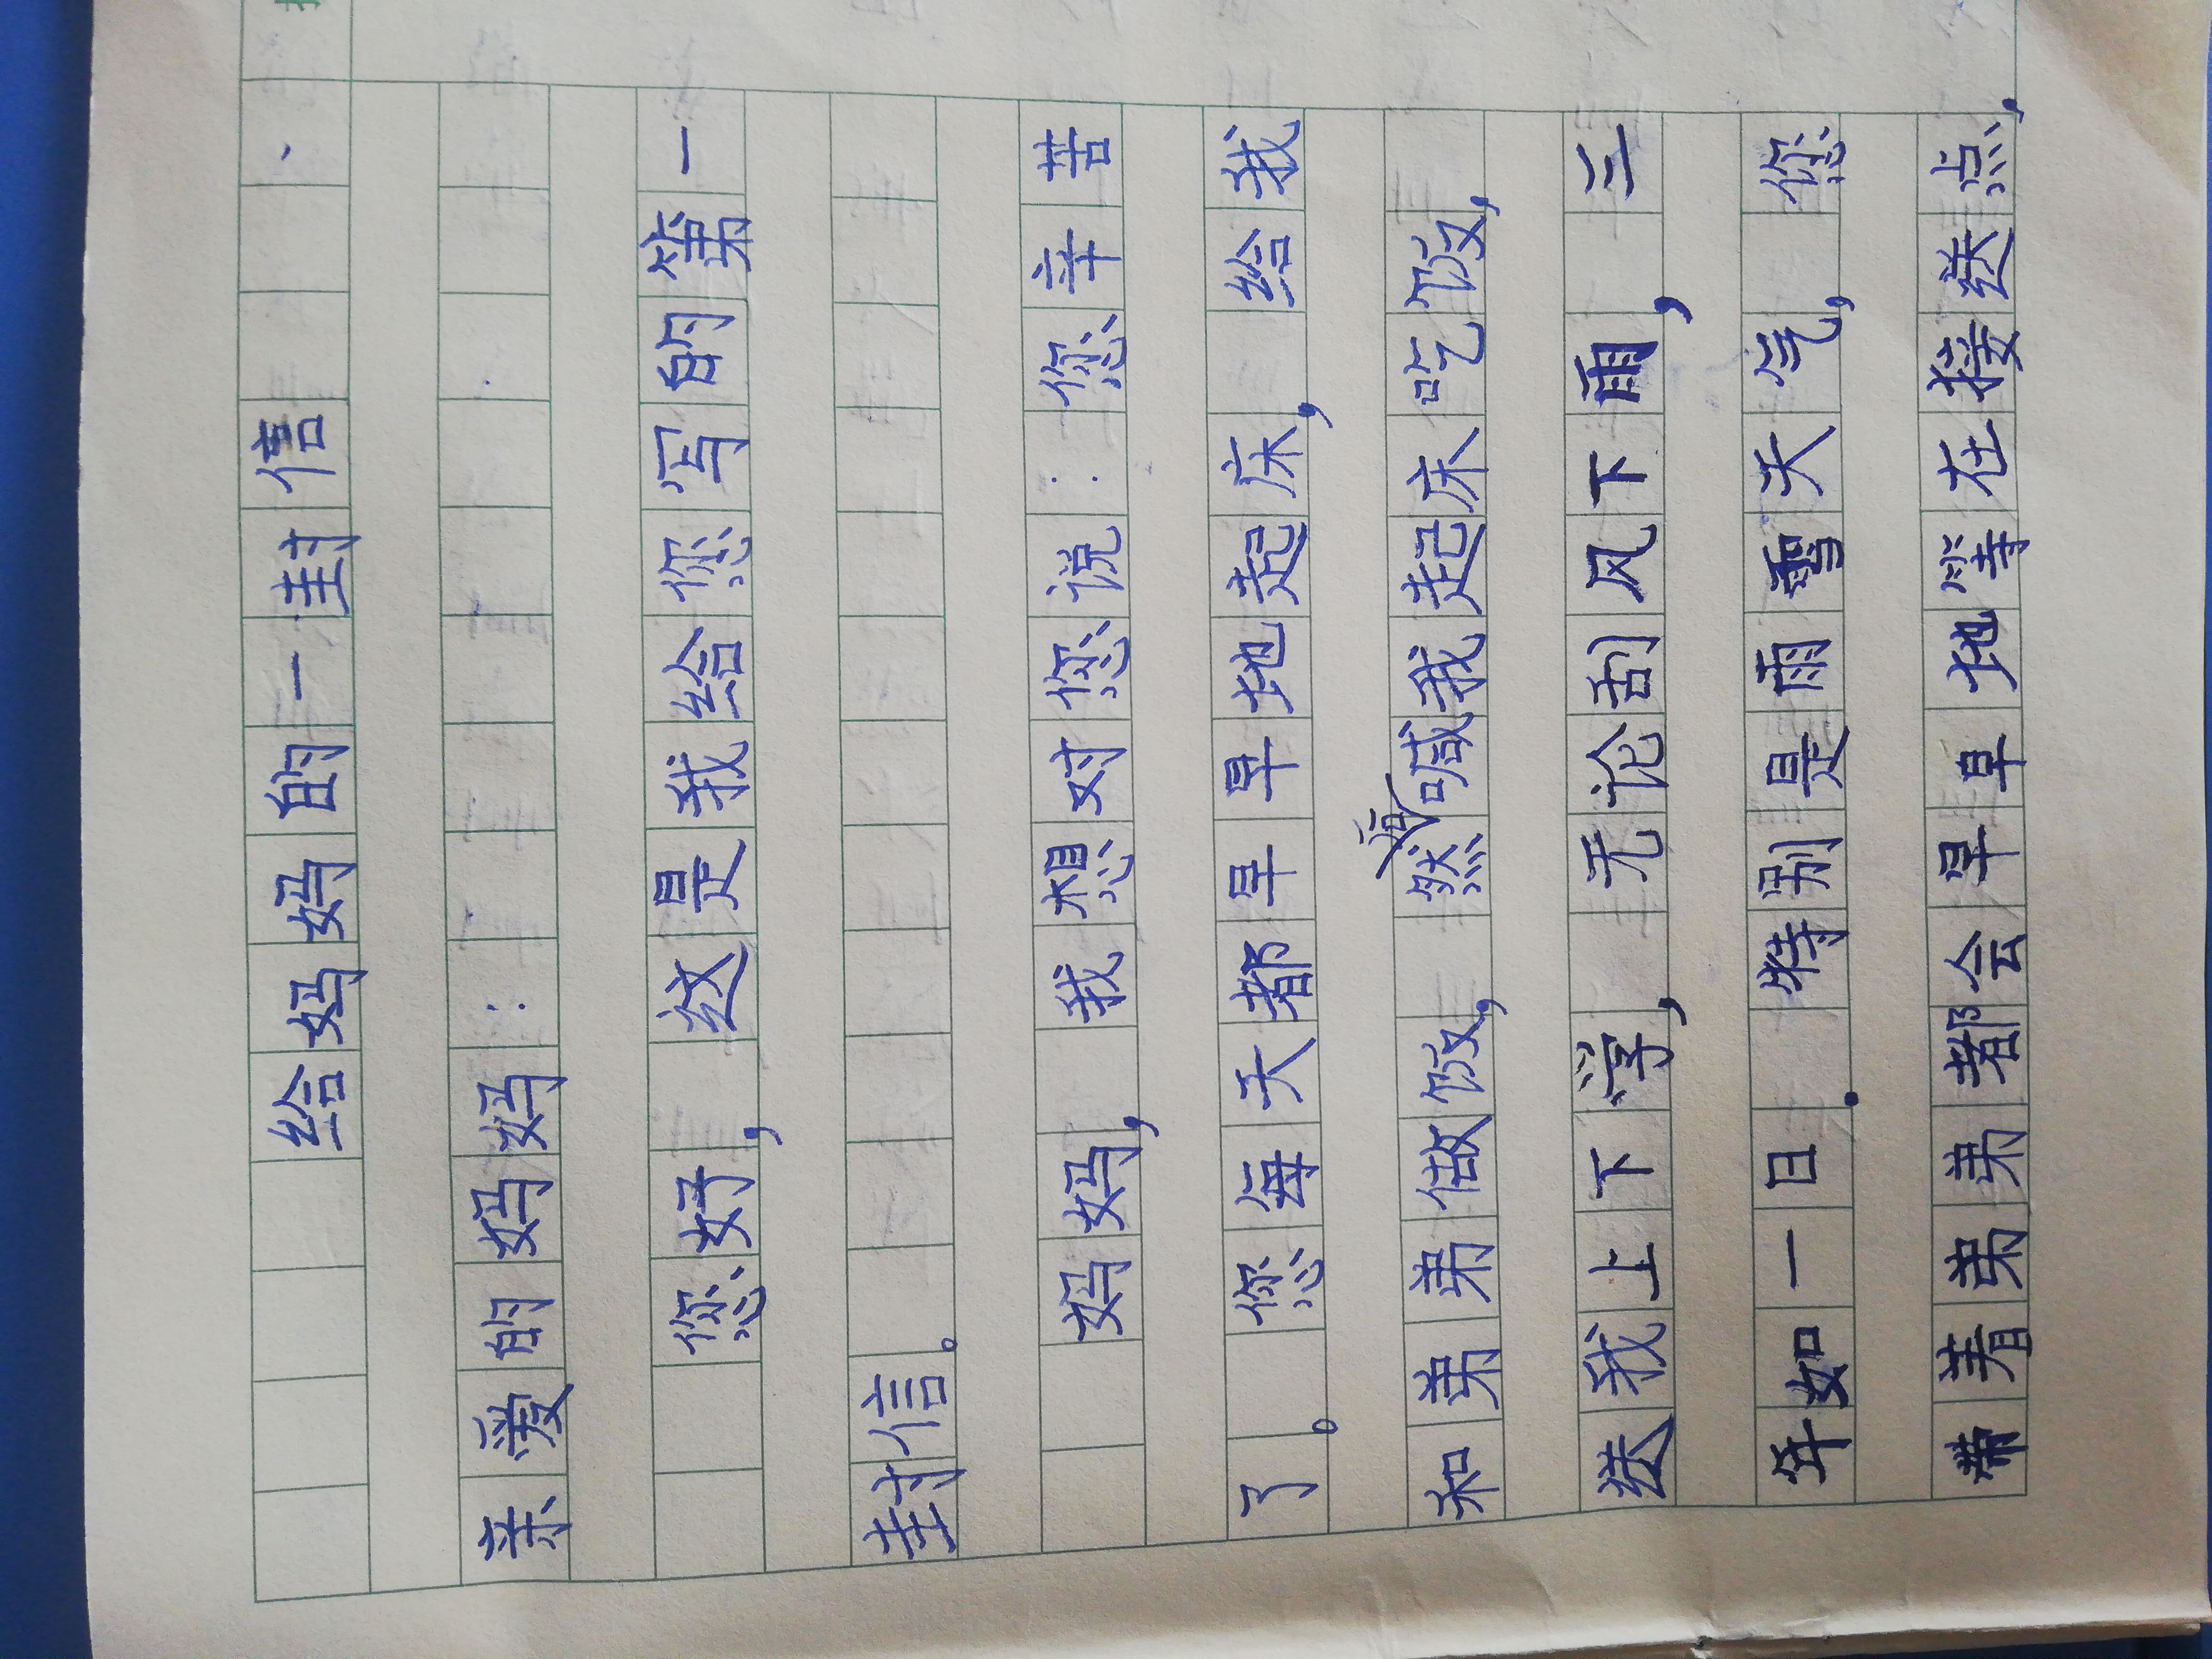 给妈妈的一封信
亲爱的妈妈：
您好，这是我给您写的第一
封信。
妈妈，我想对您说：您辛苦
了。您每天都早早地起床，给我
和弟弟做饭，然后喊我起床吃饭，
送我上下学，无论刮风下雨，三
年如一日.特别是雨雪天气，您
带着弟弟都会早早地等在接送点，